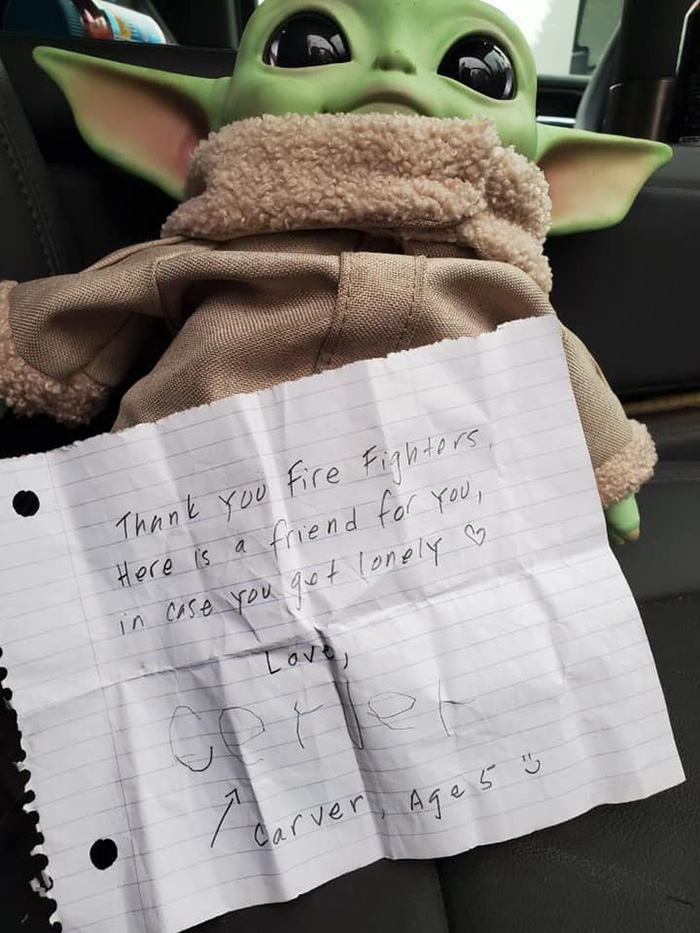 Thank you Fire Fighters,
Here is a friend for you,
in case you get lonely ♡
Love,
carver
Carver, Age 5